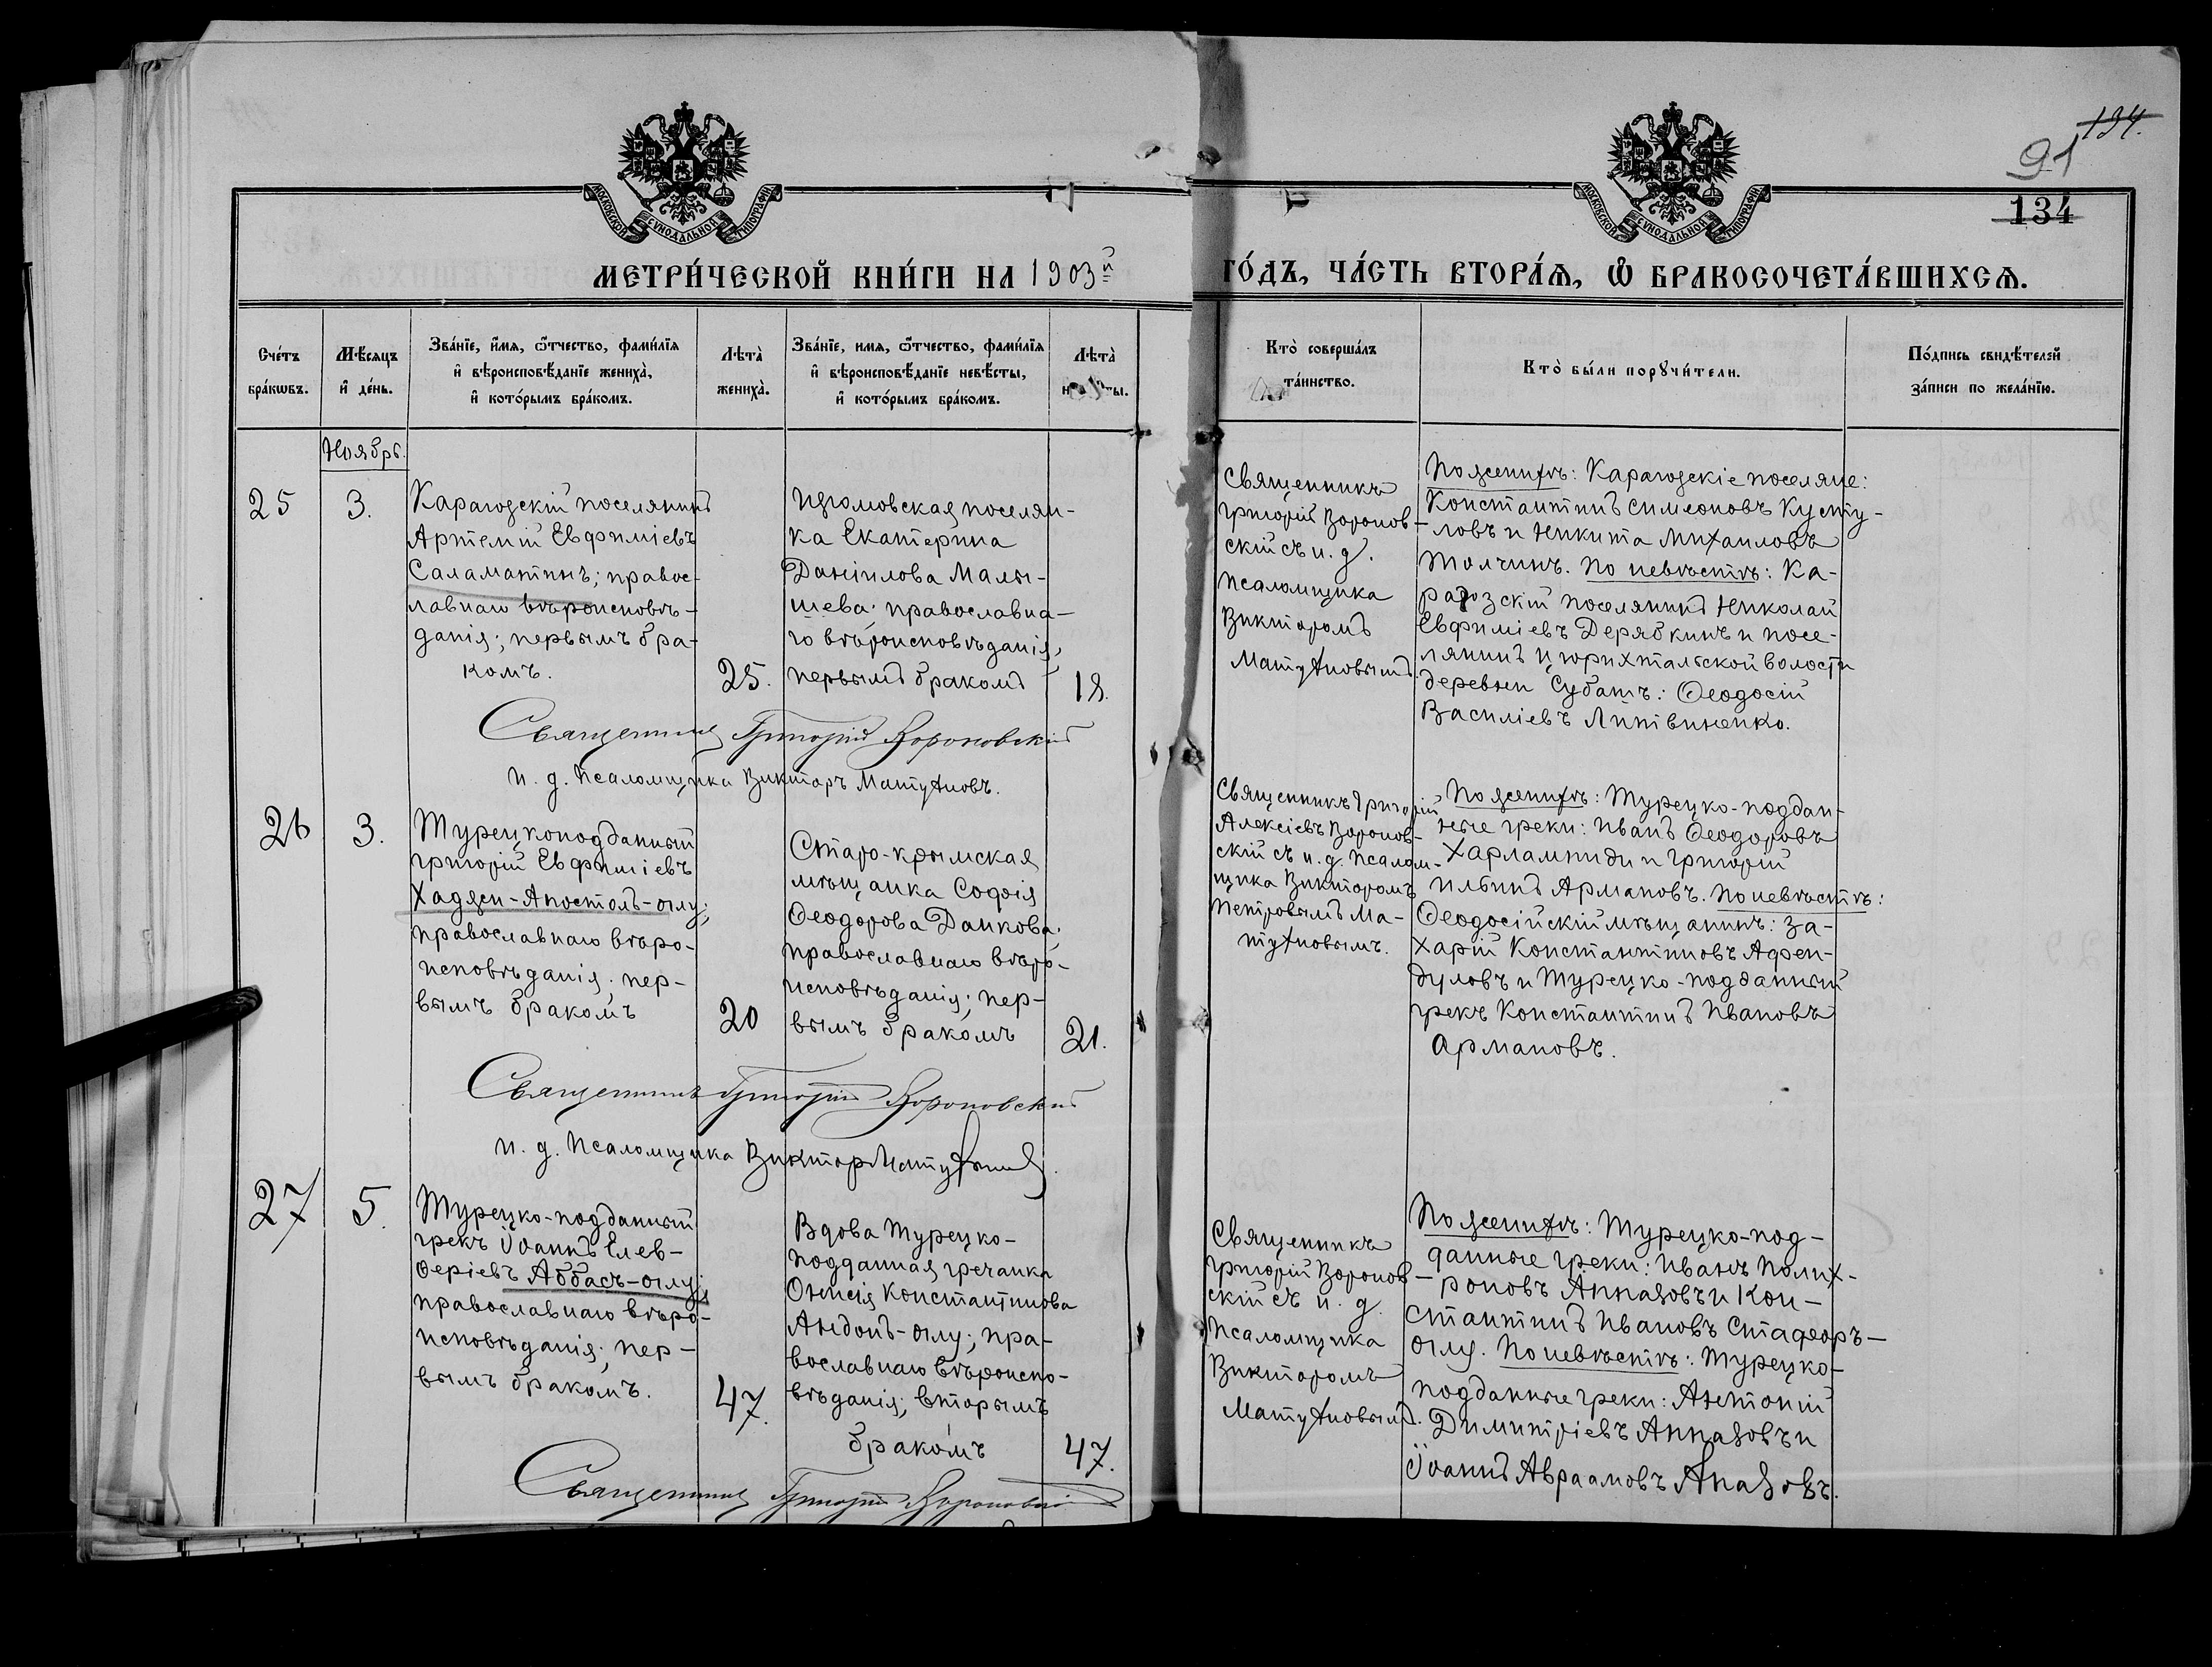 134.
91
134
МОСКОВСКОЙ СѴНОДАЛЬНОЙ ТИПОГРАФІИ
МОСКОВСКОЙ СѴНОДАЛЬНОЙ ТИПОГРАФІИ
МЕТРИ́ЧЕСКОЙ КНИ́ГИ НА 1903й
ГО́ДЪ, ЧА́СТЬ ВТОРА́Ѧ, Ѽ БРАКОСОЧЕТА́ВШИХСѦ.
Сче́тъ
бра́кѡвъ.
Мѣ́сяцъ
и҆ де́нь.
Зва́нїе, и҆́мя, ѻ҆́тчество, фами́лїя
и҆ вѣроисповѣ́данїе жениха̀,
и҆ кото́рымъ бра́комъ.
Лѣ́та̀
жениха̀.
Зва́нїе, имя, ѻ҆́тчество, фами́лїя
и҆ вѣроисповѣ́данїе невѣ́сты,
и҆ кото́рымъ бра́комъ.
Лѣ́та̀
Кто̀ соверша́лъ
та́инство.
Кто̀ бы́ли порꙋчи́тели.
По́дпись свидѣ́телей
за́писи по жела́нїю.
Ноябрь.
25
3.
Карагозскій поселянинъ
Артемій Евфиміевъ
Саламатинъ; правос-
лавнаго вѣроисповѣ-
данія; первымъ бра-
комъ.
25.
Изюмовская поселян-
ка Екатерина
Даніилова Малы-
шева; православна-
го вѣроисповѣданія,
первымъ бракомъ
18.
Священникъ
Григорій Воронов-
скій съ и. д.
Псаломщика
Викторомъ
Матухновымъ.
По женихѣ: Карагозскіе поселяне:
Константинъ Симеоновъ Кусту-
ловъ и Никита Михаиловъ
Толчинъ. По невѣстѣ: Ка-
рагозскій поселянинъ Николай
Евфиміевъ Дерябкинъ и посе-
лянинъ Цюрихтальской волости
деревни Субашъ: Ѳеодосій
Василіевъ Литвиненко.
Священникъ Григорій Вороновскій
и. д. Псаломщика Викторъ Матухновъ.
26
3.
Турецкоподданный
Григорій Евфиміевъ
Хаджи-Апостолъ-оглу;
православнаго вѣро-
исповѣданія. пер-
вымъ бракомъ
20
Старо-крымская
мѣщанка Софія
Ѳеодорова Данкова.
православнаго вѣро-
исповѣданія; пер-
вымъ бракомъ
21.
Священникъ Григорій
Алексіевъ Воронов-
скій съ и. д. Псалом-
щика Викторомъ
Петровымъ Ма-
тухновымъ.
По женихѣ: Турецко-поддан-
ные греки: Иванъ Ѳеодоровъ
Харлампиди и Григорій
Ильинъ Армановъ. По невѣстѣ:
Ѳеодосійскій мѣщанинъ: За-
харій Константиновъ Афен-
дуловъ и Турецко-подданный
грекъ Константинъ Ивановъ
Армановъ.
Священникъ Григорій Вороновскій
и. д. Псаломщика Викторъ Матухновъ.
27
5.
Турецко-подданный
грекъ Іоаннъ Елев-
ѳеріевъ Аббасъ-оглу;
православнаго вѣро-
исповѣданія; пер-
вымъ бракомъ.
47.
Вдова Турецко-
подданная гречанка
Константинова
Андонъ-оглу; пра-
вославнаго вѣроиспо-
вѣданія; вторымъ
бракомъ
47.
Священникъ
Григорій Воронов-
скій съ и. д.
Псаломщика
Викторомъ
Матухновымъ.
По женихѣ: Турецко-под-
данные греки: Иванъ Полих-
роновъ Анназовъ и Кон-
стантинъ Ивановъ Стафоръ-
оглу. По невѣстѣ: Турецко-
подданные греки: Антоній
Димитріевъ Анназовъ и
Іоаннъ Авраамовъ Аназовъ.
Священникъ Григорій Вороновскій